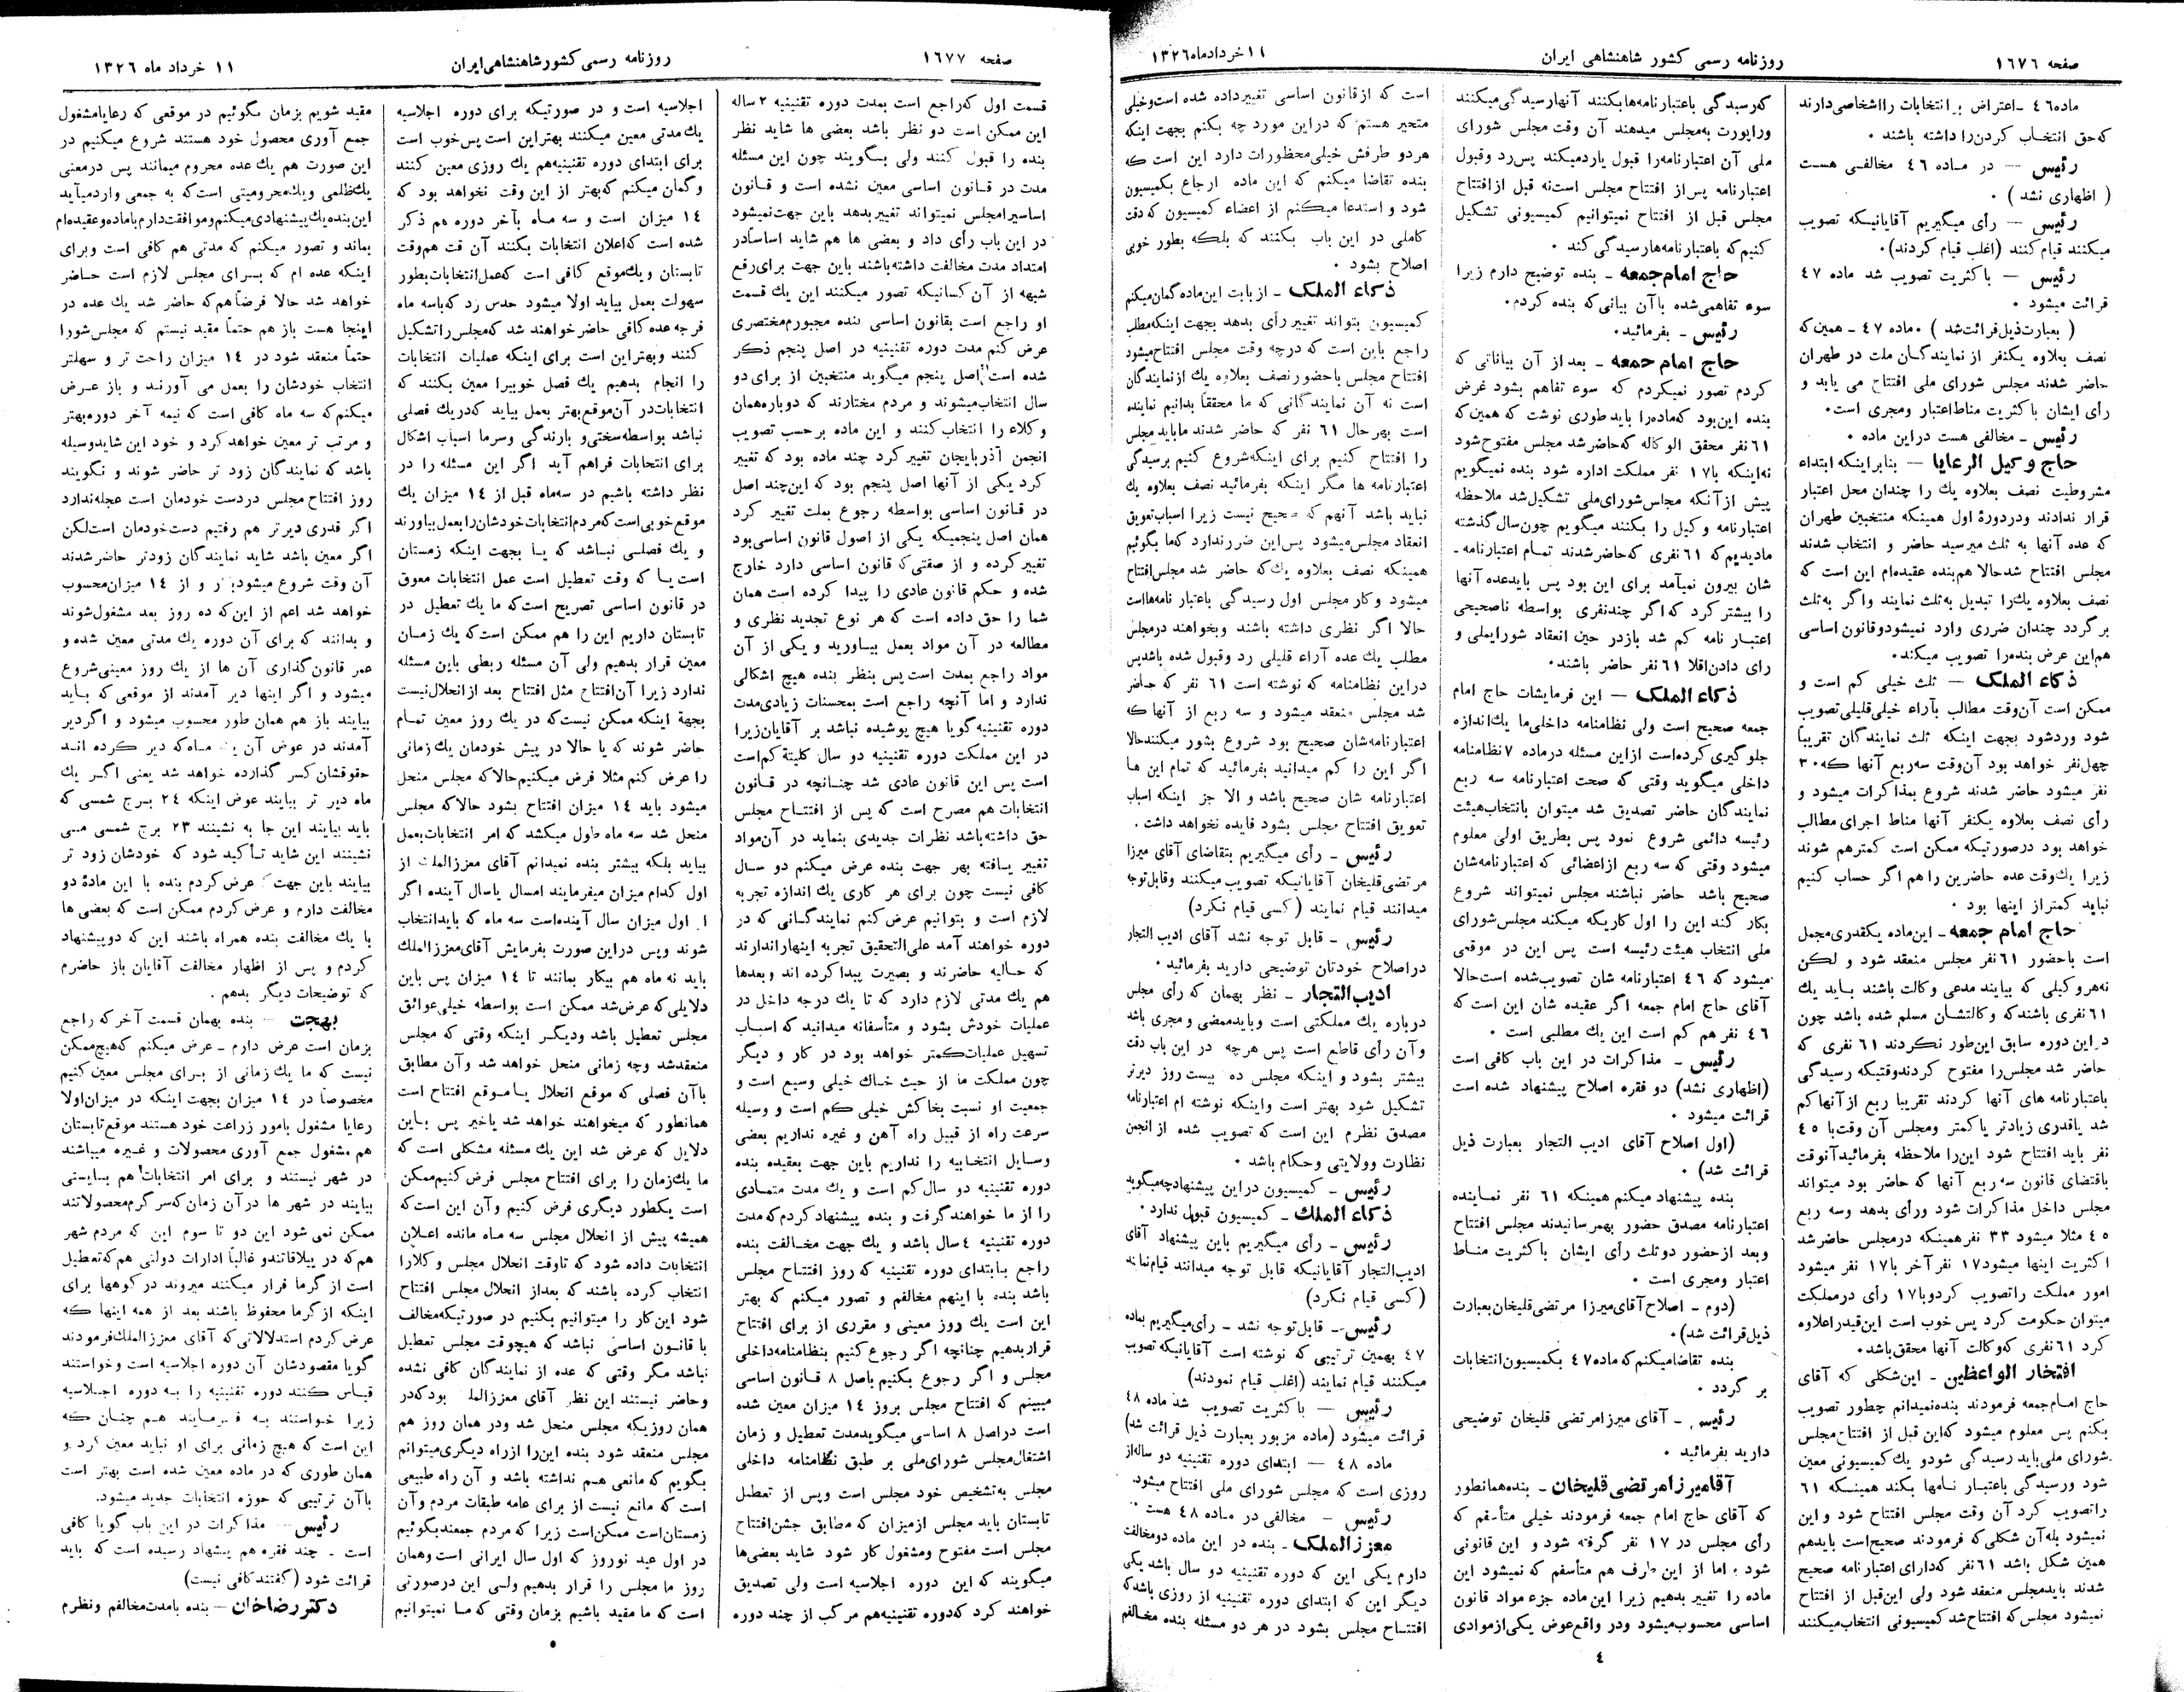 صفحه ۱۶۷۶
روزنامه رسمی کشور شاهنشاهی ایران
۱۱ خردادماه ۱۳۲۶
ماده ۴۶ - اعتراض بر انتخابات را اشخاصی دارند
که حق انتخاب کردن را داشته باشند .
رئیس — در ماده ۴۶ مخالفی هست
( اظهاری نشد ) .
رئیس — رأی میگیریم آقایانیکه تصویب
میکنند قیام کنند (اغلب قیام کردند).
رئیس — باکثریت تصویب شد ماده ۴۷
قرائت میشود .
( بعبارت ذیل قرائت شد ) . ماده ۴۷ - همین که
نصف بعلاوه یکنفر از نمایندگان ملت در طهران
حاضر شدند مجلس شورای ملی افتتاح می یابد و
رأی ایشان باکثریت مناط اعتبار ومجری است.
رئیس - مخالفی هست دراین ماده .
حاج وکیل الرعایا — بنابراینکه ابتداء
مشروطیت نصف بعلاوه یك را چندان محل اعتبار
قرار ندادند ودردورهٔ اول همینکه منتخبین طهران
که عده آنها به ثلث میرسید حاضر و انتخاب شدند
مجلس افتتاح شدحالا هم بنده عقیده ام این است که
نصف بعلاوه یك را تبدیل به ثلث نمایند واگر به ثلث
برگردد چندان ضرری وارد نمیشود وقانون اساسی
هم این عرض بنده را تصویب میکند.
ذکاء الملك — ثلث خیلی کم است و
ممکن است آن وقت مطالب بآراء خیلی قلیلی تصویب
شود وردشود بجهت اینکه ثلث نمایندگان تقریباً
چهل نفر خواهد بود آن وقت سه ربع آنها که ۳۰
نفر میشود حاضر شدند شروع بمذاکرات میشود و
رأی نصف بعلاوه یکنفر آنها مناط اجرای مطالب
خواهد بود درصورتیکه ممکن است کمترهم شوند
زیرا یك وقت عده حاضرین را هم اگر حساب کنیم
نباید کمتر از اینها بود .
حاج امام جمعه - این ماده یکقدری مجمل
است باحضور ۶۱ نفر مجلس منعقد شود و لکن
نه هروکیلی که بیایند مدعی وکالت باشند باید یك
۶۱ نفری باشند که وکالتشان مسلم شده باشد چون
دراین دوره سابق این طور نکردند ۶۱ نفری که
حاضر شد مجلس را مفتوح کردند وقتیکه رسیدگی
باعتبارنامه های آنها کردند تقریبا ربع از آنها کم
شد یاقدری زیادتر یاکمتر ومجلس آن وقت با ۴۵
نفر باید افتتاح شود این را ملاحظه بفرمائید آنوقت
باقتضای قانون سه ربع آنها که حاضر بود میتواند
مجلس داخل مذاکرات شود ورأی بدهد وسه ربع
۴۵ مثلا میشود ۳۳ نفر همینکه درمجلس حاضر شد
اکثریت اینها میشود ۱۷ نفر آخر با ۱۷ نفر میشود
امور مملکت را تصویب کرد و با ۱۷ رأی در مملکت
میتوان حکومت کرد پس خوب است این قید را علاوه
کرد ۶۱ نفری که وکالت آنها محقق باشد.
افتخار الواعظین - این شکلی که آقای
حاج امام جمعه فرمودند بنده نمیدانم چطور تصویب
بکنم پس معلوم میشود که این قبل از افتتاح مجلس
شورای ملی باید رسیدگی شود و یك کمیسیونی معین
شود ورسیدگی باعتبار نامها بکند همینکه ۶۱
را تصویب کرد آن وقت مجلس افتتاح شود و این
نمیشود بله آن شکلی که فرمودند صحیح است باید هم
همین شکل باشد ۶۱ نفر که دارای اعتبارنامه صحیح
شدند باید مجلس منعقد شود ولی این قبل از افتتاح
نمیشود مجلس که افتتاح شد کمیسیونی انتخاب میکنند
که رسیدگی باعتبارنامه ها بکنند آنها رسیدگی میکنند
وراپورت به مجلس میدهند آن وقت مجلس شورای
ملی آن اعتبارنامه را قبول یارد میکند پس رد و قبول
اعتبارنامه پس از افتتاح مجلس است نه قبل از افتتاح
مجلس قبل از افتتاح نمیتوانیم کمیسیونی تشکیل
کنیم که باعتبارنامه ها رسیدگی کند .
حاج امام جمعه - بنده توضیح دارم زیرا
سوء تفاهمی شده باآن بیانی که بنده کردم.
رئیس - بفرمائید.
حاج امام جمعه - بعد از آن بیاناتی که
کردم تصور نمیکردم که سوء تفاهم بشود غرض
بنده این بود که ماده را باید طوری نوشت که همین که
۶۱ نفر محقق الوکاله که حاضر شد مجلس مفتوح شود
نه اینکه با ۱۷ نفر مملکت اداره شود بنده نمیگویم
پیش از آنکه مجلس شورای ملی تشکیل شد ملاحظه
اعتبارنامه وکیل را بکنند میگویم چون سال گذشته
مادیدیم که ۶۱ نفری که حاضر شدند تمام اعتبارنامه -
شان بیرون نمیآمد برای این بود پس باید عده آنها
را بیشتر کرد که اگر چندنفری بواسطه ناصحیحی
اعتبارنامه کم شد بازدر حین انعقاد شورایملی و
رای دادن اقلا ۶۱ نفر حاضر باشند.
ذکاء الملك — این فرمایشات حاج امام
جمعه صحیح است ولی نظامنامه داخلی ما یك اندازه
جلوگیری کرده است از این مسئله درماده ۷ نظامنامه
داخلی میگوید وقتی که صحت اعتبارنامه سه ربع
نمایندگان حاضر تصدیق شد میتوان بانتخاب هیئت
رئیسه دائمی شروع نمود پس بطریق اولی معلوم
میشود وقتی که سه ربع از اعضائی که اعتبارنامه شان
صحیح باشد حاضر نباشند مجلس نمیتواند شروع
بکار کند این را اول کاریکه میکند مجلس شورای
ملی انتخاب هیئت رئیسه است پس این در موقعی
میشود که ۴۶ اعتبارنامه شان تصویب شده است حالا
آقای حاج امام جمعه اگر عقیده شان این است که
۴۶ نفر هم کم است این یك مطلبی است .
رئیس - مذاکرات در این باب کافی است
(اظهاری نشد) دو فقره اصلاح پیشنهاد شده است
قرائت میشود .
(اول اصلاح آقای ادیب التجار بعبارت ذیل
قرائت شد) .
بنده پیشنهاد میکنم همینکه ۶۱ نفر نماینده
اعتبارنامه مصدق حضور بهمرسانیدند مجلس افتتاح
وبعد از حضور دوثلث رأی ایشان باکثریت مناط
اعتبار ومجری است .
(دوم - اصلاح آقای میرزا مرتضی قلیخان بعبارت
ذیل قرائت شد).
بنده تقاضا میکنم که ماده ۴۷ بکمیسیون انتخابات
بر گردد .
رئیس - آقای میرزا مرتضی قلیخان توضیحی
دارید بفرمائید .
آقا میرزا مرتضی قلیخان - بنده همانطور
که آقای حاج امام جمعه فرمودند خیلی متأسفم که
رأی مجلس در ۱۷ نفر گرفته شود و این قانونی
شود . اما از این طرف هم متأسفم که نمیشود این
ماده را تغییر بدهیم زیرا این ماده جزء مواد قانون
اساسی محسوب میشود ودر واقع عوض یکی از موادی
است که از قانون اساسی تغییر داده شده است وخیلی
متحیر هستم که دراین مورد چه بکنم بجهت اینکه
هر دو طرفش خیلی محظورات دارد این است که
بنده تقاضا میکنم که این ماده ارجاع بکمیسیون
شود و استدعا میکنم از اعضاء کمیسیون که دقت
کاملی در این باب بکنند که بلکه بطور خوبی
اصلاح بشود .
ذکاء الملك - از بابت این ماده گمان میکنم
کمیسیون بتواند تغییر رأی بدهد بجهت اینکه مطلب
راجع باین است که درچه وقت مجلس افتتاح میشود
افتتاح مجلس باحضور نصف بعلاوه یك از نمایندگان
است نه آن نمایندگانی که ما محققاً بدانیم نماینده
است بهرحال ۶۱ نفر که حاضر شدند ما باید مجلس
را افتتاح کنیم برای اینکه شروع کنیم برسیدگی
اعتبارنامه ها مگر اینکه بفرمائید نصف بعلاوه یك
نباید باشد آنهم که صحیح نیست زیرا اسباب تعویق
انعقاد مجلس میشود پس این ضرر ندارد که ما بگوئیم
همینکه نصف بعلاوه یك که حاضر شد مجلس افتتاح
میشود وکار مجلس اول رسیدگی باعتبار نامه ها است
حالا اگر نظری داشته باشند وبخواهند درمجلس
مطلب یك عده آراء قلیلی رد وقبول شده باشد پس
دراین نظامنامه که نوشته است ۶۱ نفر که حاضر
شد مجلس منعقد میشود و سه ربع از آنها که
اعتبارنامه شان صحیح بود شروع بشور میکنند حالا
اگر این را کم میدانید بفرمائید که تمام این ها
اعتبارنامه شان صحیح باشد و الا جز اینکه اسباب
تعویق افتتاح مجلس بشود فایده نخواهد داشت .
رئیس - رأی میگیریم بتقاضای آقای میرزا
مرتضی قلیخان آقایانیکه تصویب میکنند وقابل توجه
میدانند قیام نمایند (کسی قیام نکرد)
رئیس - قابل توجه نشد آقای ادیب التجار
دراصلاح خودتان توضیحی دارید بفرمائید .
ادیب التجار - نظر بهمان که رأی مجلس
درباره یك مملکتی است وباید ممضی و مجری باشد
وآن رأی قاطع است پس هرچه در این باب دقت
بیشتر بشود و اینکه مجلس ده بیست روز دیرتر
تشکیل شود بهتر است واینکه نوشته ام اعتبارنامه
مصدق نظرم این است که تصویب شده از انجمن
نظارت وولایتی وحکام باشد .
رئیس - کمیسیون دراین پیشنهاد چه میگوید
ذکاء الملك - کمیسیون قبول ندارد .
رئیس - رأی میگیریم باین پیشنهاد آقای
ادیب التجار آقایانیکه قابل توجه میدانند قیام نمایند
(کسی قیام نکرد)
رئیس - قابل توجه نشد - رأی میگیریم بماده
۴۷ بهمین ترتیبی که نوشته است آقایانیکه تصویب
میکنند قیام نمایند (اغلب قیام نمودند)
رئیس — باکثریت تصویب شد ماده ۴۸
قرائت میشود (ماده مزبور بعبارت ذیل قرائت شد)
ماده ۴۸ — ابتدای دوره تقنینیه دو ساله از
روزی است که مجلس شورای ملی افتتاح میشود.
رئیس — مخالفی در ماده ۴۸ هست
معزز الملك - بنده در این ماده دو مخالفت
دارم یکی این که دوره تقنینیه دو سال باشد یکی
دیگر این که ابتدای دوره تقنینیه از روزی باشد که
افتتاح مجلس بشود در هر دو مسئله بنده مخالفم
۴
صفحه ۱۶۷۷
روزنامه رسمی کشور شاهنشاهی ایران
۱۱ خرداد ماه ۱۳۲۶
قسمت اول که راجع است بمدت دوره تقنینیه ۲ ساله
این ممکن است دو نظر باشد بعضی ها شاید نظر
بنده را قبول کنند ولی بگویند چون این مسئله
مدت در قانون اساسی معین نشده است و قانون
اساسی را مجلس نمیتواند تغییر بدهد باین جهت نمیشود
در این باب رأی داد و بعضی ها هم شاید اساساً در
امتداد مدت مخالفت داشته باشند باین جهت برای رفع
شبهه از آن کسانیکه تصور میکنند این یك قسمت
او راجع است بقانون اساسی بنده مجبورم مختصری
عرض کنم مدت دوره تقنینیه در اصل پنجم ذکر
شده است اصل پنجم میگوید منتخبین از برای دو
سال انتخاب میشوند و مردم مختارند که دوباره همان
وکلاء را انتخاب کنند و این ماده برحسب تصویب
انجمن آذربایجان تغییر کرد چند ماده بود که تغییر
کرد یکی از آنها اصل پنجم بود که این چند اصل
در قانون اساسی بواسطه رجوع بملت تغییر کرد
همان اصل پنجمیکه یکی از اصول قانون اساسی بود
تغییر کرده و از صفتی که قانون اساسی دارد خارج
شده و حکم قانون عادی را پیدا کرده است همان
شما را حق داده است که هر نوع تجدید نظری و
مطالعه در آن مواد بعمل بیاورید و یکی از آن
مواد راجع بمدت است پس بنظر بنده هیچ اشکالی
ندارد و اما آنچه راجع است بمحسنات زیادی مدت
دوره تقنینیه گویا هیچ پوشیده نباشد بر آقایان زیرا
در این مملکت دوره تقنینیه دو سال کلیتة کم است
است پس این قانون عادی شد چنانچه در قانون
انتخابات هم مصرح است که پس از افتتاح مجلس
حق داشته باشد نظرات جدیدی بنماید در آن مواد
تغییر یافته بهر جهت بنده عرض میکنم دو سال
کافی نیست چون برای هر کاری یك اندازه تجربه
لازم است و بتوانیم عرض کنم نمایندگانی که در
دوره خواهند آمد علی التحقیق تجربه اینها را ندارند
که حالیه حاضرند و بصیرت پیدا کرده اند و بعدها
هم یك مدتی لازم دارد که تا یك درجه داخل در
عملیات خودش بشود و متأسفانه میدانید که اسباب
تسهیل عملیات کمتر خواهد بود در کار و دیگر
چون مملکت ما از حیث خاك خیلی وسیع است و
جمعیت او نسبت بخاکش خیلی کم است و وسیله
سرعت راه از قبیل راه آهن و غیره نداریم بعضی
وسایل انتخابیه را نداریم باین جهت بعقیده بنده
دوره تقنینیه دو سال کم است و یك مدت متمادی
را از ما خواهند گرفت و بنده پیشنهاد کردم که مدت
دوره تقنینیه ۴ سال باشد و یك جهت مخالفت بنده
راجع بابتدای دوره تقنینیه که روز افتتاح مجلس
باشد بنده با اینهم مخالفم و تصور میکنم که بهتر
این است یك روز معینی و مقرری از برای افتتاح
قرار بدهیم چنانچه اگر رجوع کنیم بنظامنامه داخلی
مجلس و اگر رجوع بکنیم باصل ۸ قانون اساسی
میبینم که افتتاح مجلس بروز ۱۴ میزان معین شده
است دراصل ۸ اساسی میگوید مدت تعطیل و زمان
اشتغال مجلس شورای ملی بر طبق نظامنامه داخلی
مجلس به تشخیص خود مجلس است وپس از تعطیل
تابستان باید مجلس از میزان که مطابق جشن افتتاح
مجلس است مفتوح ومشغول کار شود شاید بعضی ها
میگویند که این دوره اجلاسیه است ولی تصدیق
خواهند کرد که دوره تقنینیه هم مرکب از چند دوره
اجلاسیه است و در صورتیکه برای دوره اجلاسیه
یك مدتی معین میکنند بهتر این است پس خوب است
برای ابتدای دوره تقنینیه هم یك روزی معین کنند
و گمان میکنم که بهتر از این وقت نخواهد بود که
۱۴ میزان است و سه ماه بآخر دوره هم ذکر
شده است که اعلان انتخابات بکنند آن وقت هم وقت
تابستان و یك موقع کافی است که عمل انتخابات بطور
سهولت بعمل بیاید اولا میشود حدس زد که با سه ماه
فرجه عده کافی حاضر خواهند شد که مجلس را تشکیل
کنند و بهتر این است برای اینکه عملیات انتخابات
را انجام بدهیم یك فصل خوبیرا معین بکنند که
انتخابات در آن موقع بهتر بعمل بیاید که در یك فصلی
نباشد بواسطه سختی و بارندگی وسرما اسباب اشکال
برای انتخابات فراهم آید اگر این مسئله را در
نظر داشته باشیم در سه ماه قبل از ۱۴ میزان یك
موقع خوبی است که مردم انتخابات خودشان را بعمل بیاورند
و یك فصلی نباشد که یا بجهت اینکه زمستان
است یا که وقت تعطیل است عمل انتخابات معوق
در قانون اساسی تصریح است که ما یك تعطیل در
تابستان داریم این را هم ممکن است که یك زمان
معین قرار بدهیم ولی آن مسئله ربطی باین مسئله
ندارد زیرا آن افتتاح مثل افتتاح بعد از انحلال نیست
بجهة اینکه ممکن نیست که در یك روز معین تمام
حاضر شوند که یا حالا در پیش خودمان یك زمانی
را عرض کنم مثلا فرض میکنیم حالا که مجلس منحل
میشود باید ۱۴ میزان افتتاح بشود حالا که مجلس
منحل شد سه ماه طول میکشد که امر انتخابات بعمل
بیاید بلکه بیشتر بنده نمیدانم آقای معزز الملك از
اول کدام میزان میفرمایند امسال یاسال آینده اگر
از اول میزان سال آینده است سه ماه که باید انتخاب
شوند وپس دراین صورت بفرمایش آقای معزز الملك
باید نه ماه هم بیکار بمانند تا ۱۴ میزان پس باین
دلایلی که عرض شد ممکن است بواسطه خیلی عوائق
مجلس تعطیل باشد ودیگر اینکه وقتی که مجلس
منعقد شد وچه زمانی منحل خواهد شد وآن مطابق
باآن فصلی که موقع انحلال یا موقع افتتاح است
همانطور که میخواهند خواهد شد یاخیر پس باین
دلایل که عرض شد این یك مسئله مشکلی است که
ما یك زمان را برای افتتاح مجلس فرض کنیم ممکن
است یکطور دیگری فرض کنیم وآن این است که
همیشه پیش از انحلال مجلس سه ماه مانده اعلان
انتخابات داده شود که تاوقت انحلال مجلس وکلا را
انتخاب کرده باشند که بعد از انحلال مجلس افتتاح
شود این کار را میتوانیم بکنیم در صورتیکه مخالف
با قانون اساسی نباشد که هیچوقت مجلس تعطیل
نباشد مگر وقتی که عده از نمایندگان کافی نشده
وحاضر نیستند این نظر آقای معزز الملك بود که در
همان روزیکه مجلس منحل شد ودر همان روز هم
مجلس منعقد شود بنده این را از راه دیگری میتوانم
بگویم که مانعی هم نداشته باشد و آن راه طبیعی
است که مانع نیست از برای عامه طبقات مردم وآن
زمستان است ممکن است زیرا که مردم جمعند بگوئیم
در اول عید نوروز که اول سال ایرانی است وهمان
روز ما مجلس را قرار بدهیم ولی این درصورتی
است که ما مقید باشیم بزمان وقتی که ما نمیتوانیم
مقید شویم بزمان بگوئیم در موقعی که رعایا مشغول
جمع آوری محصول خود هستند شروع میکنیم در
این صورت هم یك عده محروم میمانند پس درمعنی
یك ظلمی ویك محرومیتی است که به جمعی وارد میآید
این بنده یك پیشنهادی میکنم و موافقت دارم با ماده و عقیده ام
بماند و تصور میکنم که مدتی هم کافی است وبرای
اینکه عده ام که برای مجلس لازم است حاضر
خواهد شد حالا فرضاً هم که حاضر شد یك عده در
اینجا هست باز هم حتماً مقید نیستم که مجلس شورا
حتماً منعقد شود در ۱۴ میزان راحت تر و سهلتر
انتخاب خودشان را بعمل می آورند و باز عرض
میکنم که سه ماه کافی است که نیمه آخر دوره بهتر
و مرتب تر معین خواهد کرد و خود این شاید وسیله
باشد که نمایندگان زود تر حاضر شوند و نگویند
روز افتتاح مجلس دردست خودمان است عجله ندارد
اگر قدری دیرتر هم رفتیم دست خودمان است لکن
اگر معین باشد شاید نمایندگان زودتر حاضر شدند
آن وقت شروع میشود بکار و از ۱۴ میزان محسوب
خواهد شد اعم از این که ده روز بعد مشغول شوند
و بدانند که برای آن دوره یك مدتی معین شده و
عمر قانون گذاری آن ها از یك روز معینی شروع
میشود و اگر اینها دیر آمدند از موقعی که باید
بیایند باز هم همان طور محسوب میشود و اگر دیر
آمدند در عوض آن یك ماه که دیر کرده اند
حقوقشان کسر گذارده خواهد شد یعنی اگر یك
ماه دیر تر بیایند عوض اینکه ۲۴ برج شمسی که
باید بیایند این جا به نشینند ۲۳ برج شمسی می
نشینند این شاید تأکید شود که خودشان زود تر
بیایند باین جهت که عرض کردم بنده با این مادهٔ دو
مخالفت دارم و عرض کردم ممکن است که بعضی ها
با یك مخالفت بنده همراه باشند این که دو پیشنهاد
کردم و پس از اظهار مخالفت آقایان باز حاضرم
که توضیحات دیگر بدهم .
بهجت — بنده بهمان قسمت آخر که راجع
بزمان است عرض دارم - عرض میکنم که هیچ ممکن
نیست که ما یك زمانی از برای مجلس معین کنیم
مخصوصاً در ۱۴ میزان بجهت اینکه در میزان اولا
رعایا مشغول بامور زراعت خود هستند موقع تابستان
هم مشغول جمع آوری محصولات و غیره میباشند
در شهر نیستند و برای امر انتخابات هم بایستی
بیایند در شهر ها درآن زمان که سرگرم محصولاتند
ممکن نمی شود این دو تا سوم این که مردم شهر
هم که در ییلاقاتند و غالباً ادارات دولتی هم که تعطیل
است از گرما فرار میکنند میروند در کوهها برای
اینکه از گرما محفوظ باشند بعد از همه اینها که
عرض کردم استدلالاتی که آقای معزز الملك فرمودند
گویا مقصودشان آن دوره اجلاسیه است وخواستند
قیاس کنند دوره تقنینیه را به دوره اجلاسیه
زیرا خواستند به فرمایند هم چنان که
این است که هیچ زمانی برای او نباید معین کرد و
همان طوری که در ماده معین شده است بهتر است
باآن ترتیبی که حوزه انتخابات جدید میشود.
رئیس — مذاکرات در این باب گویا کافی
است - چند فقره هم پیشنهاد رسیده است که باید
قرائت شود (گفتند کافی نیست)
دکتر رضاخان — بنده بامدت مخالفم ونظرم
۵